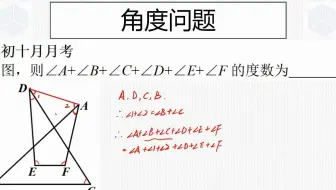 角度问题
初十月月考
图，则∠A+∠B+∠C+∠D+∠E+∠F 的度数为
D
1
2
A
E F
A.D.C.B.
∴∠1+∠2=∠B+∠C
∴∠A+∠B+∠C+∠D+∠E+∠F
=∠A+∠1+∠2+∠D+∠E+∠F